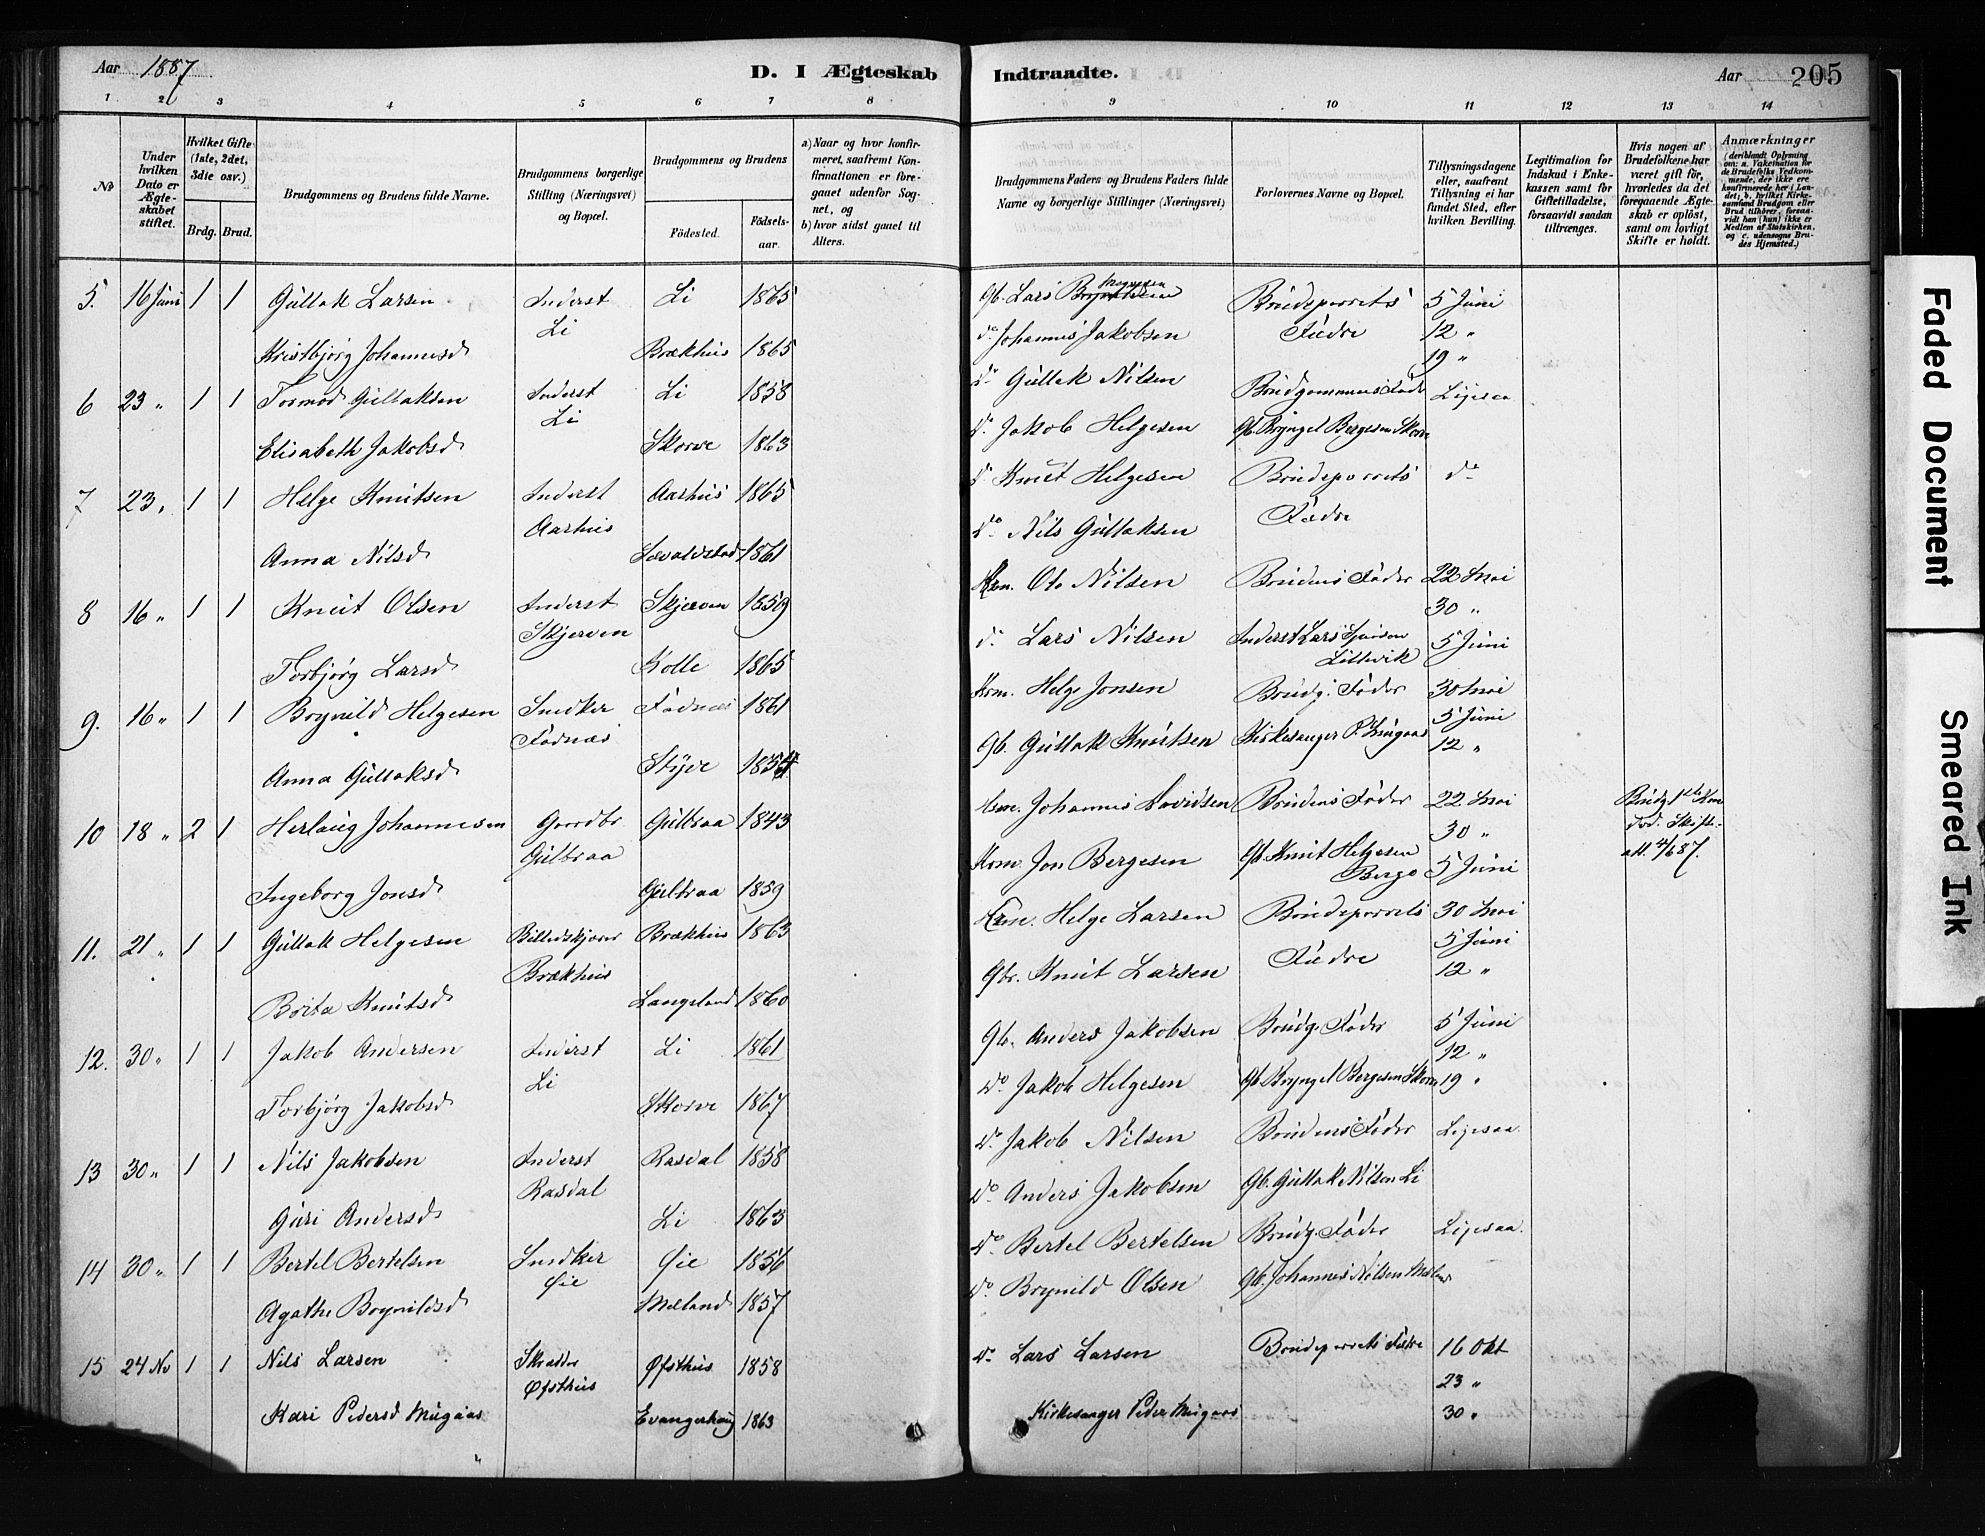 Aar 1887
D. I Ægteskab Indtraadte.
Aar 205
1 2 3 4 5 6 7 8 9 10 11 12 13 14
No
Under hvilken Dato er Ægteskabet stiftet.
Hvilket Gifte (1ste, 2det, 3die osv.)
Brdg. Brud.
Brudgommens og Brudens fulde Navne.
Brudgommens borgerlige Stilling (Næringsvei) og Bopæl.
Brudgommens og Brudens
Födested.
Födselsaar.
a) Naar og hvor konfirmeret, saafremt Konfirmationen er foregaaet udenfor Sognet, og
b) hvor sidst gaaet til Alters.
Brudgommens Faders og Brudens Faders fulde Navne og borgerlige Stillinger (Næringsvei)
Forlovernes Navne og Bopæl.
Tillysningsdagene eller, saafremt Tillysning ei har fundet Sted, efter hvilken Bevilling.
Legitimation for Indskud i Enkekassen samt for Giftetilladelse, forsaavidt saadan tiltrænges.
Hvis nogen af Brudefolkene har været gift för, hvorledes da det foregaaende Ægteskab er oplöst, samt om lovligt Skifte er holdt.
Anmærkninger
(deriblandt Oplysning om: a. Vakcination for de Brudefolks Vedkommende, der ikke ere konfirmerede her i Landet; b. hvilket Kirkesamfund Brudgom eller Brud tilhörer, forsaavidt han (hun) ikke er Medlem af Statskirken, og c. udensogns Brudes Hjemsted.)
5. 16 Juni 1 1 Gullak Larsen Inderst Li Li 1865 Gb. Lars Brudeparrets 5 Juni
Kristbjörg Johannesd Brækhus 1865 do Johannes Jakobsen Fædre 12 "
19 "
6 23 " 1 1 Tormod Gullaksen Inderst Li Li 1858 do Gullak Nilsen Brudgommens Fader Ligesaa
Elisabeth Jakobsd Skorve 1863 do Jakob Helgesen Gb. Bryngel Bergesen Skorve
7 23 " 1 1 Helge Knutsen Inderst Aarhus Aarhus 1865 do Knut Helgesen Brudeparrets Fædre do
Anna Nilsd 1861 do Nils Gullaksen
8 16 " 1 1 Knut Olsen Inderst Skjerven Skjerven 1859 Hsm. Ole Nilsen Brudens Fader 22 Mai
30 "
Torbjörg Larsd Kolle 1865 do Lars Nilsen Inderst Lars Lillevik 5 Juni
9. 16 " 1 1 Brynild Helgesen Snedker Fadnæs Fadnæs 1861 Krm. Helge Jonsen Brudg. Fader 30 Mai
5 Juni
Anna Gullaksd Styve 1854 Gb. Gullak Knutsen Kirkesanger P. Mugaas 12 "
10 18 " 2 1 Herlaug Johannesen Gaardbr Gulbraa Gulbraa 1843 Hsm. Johannes Davidsen Brudens Fader 22 Mai Brudg 1ste Kone död. Skifteatt. 4/6 87.
30 "
Ingeborg Jonsd Gulbraa 1859 Krm Jon Bergesen Gb. Knut Helgesen Bergo 5 Juni
11. 21 " 1 1 Gullak Helgesen Billedskjærer Brækhus Brækhus 1863 Krm. Helge Larsen Brudeparrets Fædre 30 Mai
5 Juni
Brita Knutsd Langeland 1860 Gbr. Knut Larsen 12 "
12. 30 " 1 1 Jakob Andersen Inderst Li Li 1861 Gb. Anders Jakobsen Brudg. Fader 5 Juni
12 "
Torbjörg Jakobsd Skorve 1867 do Jakob Helgesen Gb Bryngel Bergesen Skorve 19 "
13 30 " 1 1 Nils Jakobsen Inderst Rasdal Rasdal 1858 do Jakob Nilsen Brudens Fader Ligesaa
Guri Andersd Li 1863 do Anders Jakobsen Gb. Gullak Nilsen Li
14 30 " 1 1 Bertel Bertelsen Snedker Øie Øie 1856 do Bertel Bertelsen Brudg. Fader Ligesaa
Agathe Brynildsd Mæland 1857 do Brynild Olsen Gb. Johannes Nilsen Mæland
15 24 Nov 1 1 Nils Larsen Skrædder Øfsthus Øfsthus 1858 do Lars Larsen Brudeparrets Fædre 16 Okt
23 "
Kari Pedersd Mugaas Evangerhaug 1863 Kirkesanger Peder Mugaas 30 "
Faded Document
Smeared Ink